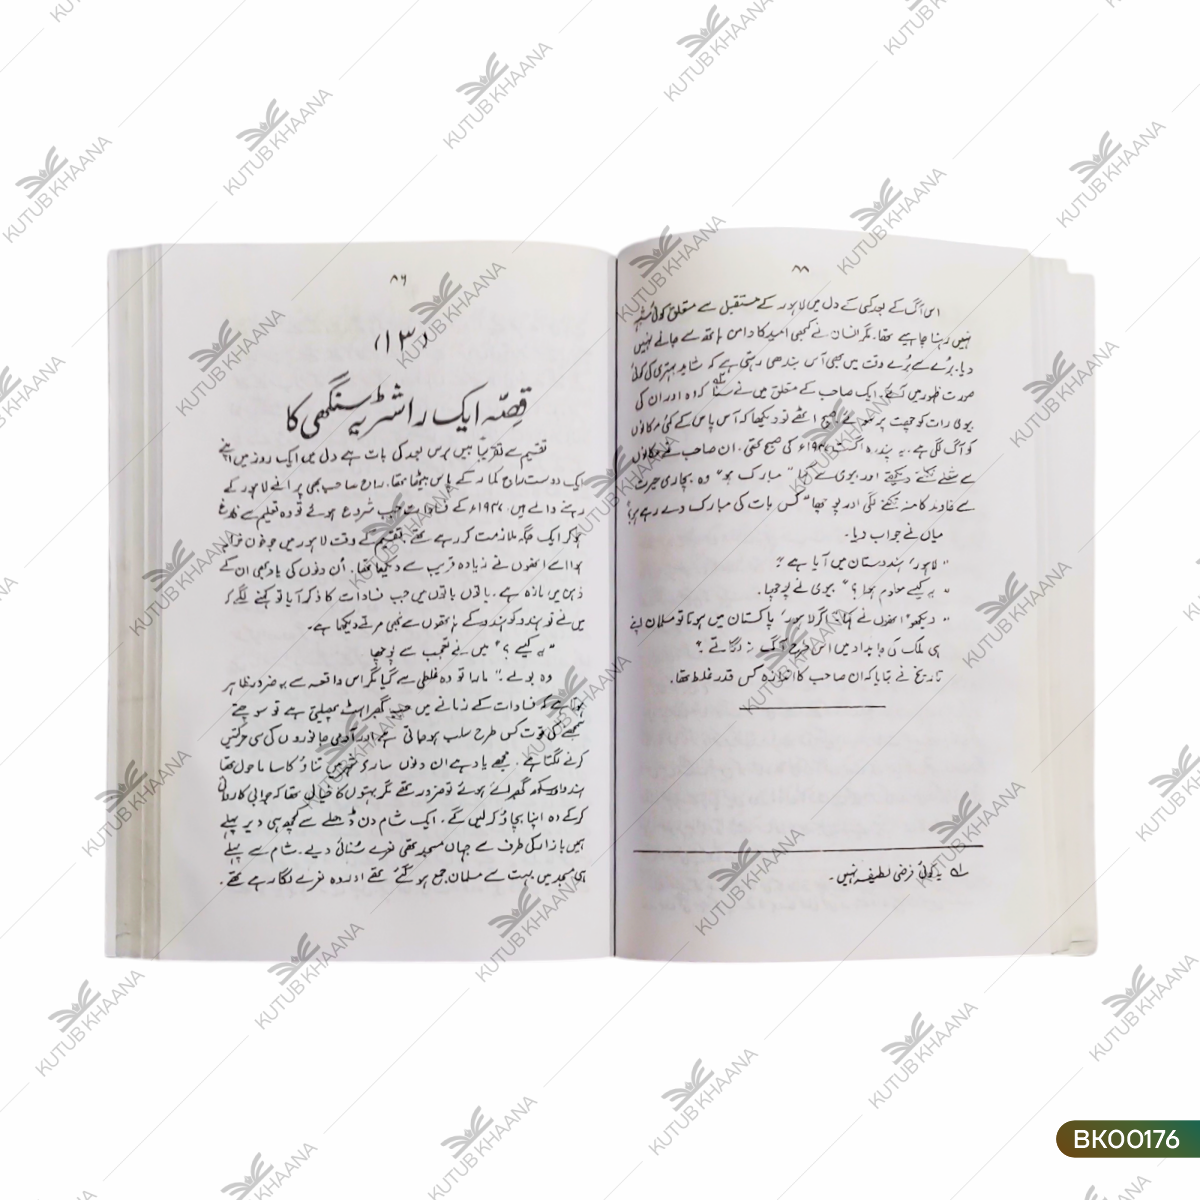 ۸۸
اس آگ کے بعد کسی کے دل میں لاہور کے مستقبل سے متعلق کوئی شبہ
نہیں رہنا چاہیے تھا۔ مگر انسان نے کبھی امید کا دامن ہاتھ سے جانے نہیں
دیا۔ بُرے سے بُرے وقت میں بھی آس بندھی رہتی ہے کہ شاید بہتری کی کوئی
صورت ظہور میں آئے۔ ایک صاحب کے متعلق میں نے سنا کہ وہ اور ان کی
بیوی رات کو چھت پر سوئے صبح اٹھے تو دیکھا کہ آس پاس کے کئی مکانوں
کو آگ لگی ہے۔ یہ پندرہ اگست ۱۹۴۷ء کی صبح تھی۔ ان صاحب نے مکانوں
سے شعلے نکلتے دیکھے اور بیوی سے کہا "مبارک ہو" وہ بچاری حیرت
سے خاوند کا منہ تکنے لگی اور پوچھا "کس بات کی مبارک دے رہے ہو؟
میاں نے جواب دیا۔
"لاہور ہندوستان میں آیا ہے"
"یہ کیسے معلوم ہوا؟" بیوی نے پوچھا۔
"دیکھو" انھوں نے کہا "اگر لاہور پاکستان میں ہوتا تو مسلمان اپنے
ہی ملک کی جایداد میں اس طرح آگ نہ لگاتے"؟
تاریخ نے بتایا کہ ان صاحب کا اندازہ کس قدر غلط تھا۔
لہ یہ کوئی فرضی لطیفہ نہیں۔
۸۶
(۱۳)
قصّہ ایک راشٹریہ سنگھی کا
تقسیم سے تقریباً بیس برس بعد کی بات ہے دل میں ایک روز میں اپنے
ایک دوست راج کمار کے پاس بیٹھا تھا۔ راج صاحب بھی پرانے لاہور کے
رہنے والے ہیں۔ ۱۹۴۷ء کے فسادات جب شروع ہوئے تو وہ تعلیم سے فارغ
ہو کر ایک جگہ ملازمت کر رہے تھے۔ تقسیم کے وقت لاہور میں جو خون خرابہ
ہوا اسے انھوں نے زیادہ قریب سے دیکھا تھا۔ اُن دنوں کی یاد بھی ان کے
ذہن میں تازہ ہے۔ باتوں باتوں میں جب فسادات کا ذکر آیا تو کہنے لگے کہ
میں نے تو ہندو کو ہندو کے ہاتھوں سے بھی مرتے دیکھا ہے۔
"یہ کیسے؟" میں نے تعجب سے پوچھا
وہ بولے "مارا تو وہ غلطی سے گیا مگر اس واقعہ سے یہ ضرور ظاہر
ہوتا ہے کہ فسادات کے زمانے میں جب گھبراہٹ پھیلتی ہے تو سوچنے
سمجھنے کی قوت کس طرح سلب ہو جاتی ہے اور آدمی جانوروں کی سی حرکتیں
کرنے لگتا ہے۔ مجھے یاد ہے ان دنوں سارے شہر میں تناؤ کا سا ماحول تھا
ہندو اور سکھ گھبرائے ہوئے تو ضرور تھے مگر بہتوں کا خیال تھا کہ جوابی کارروائی
کر کے وہ اپنا بچاؤ کر لیں گے۔ ایک شام دن ڈھلنے سے کچھ ہی دیر پہلے
ہمیں بازار کی طرف سے جہاں مسجد تھی نعرے سُنائی دیے۔ شام سے پہلے
ہی مسجد میں بہت سے مسلمان جمع ہو گئے تھے اور وہ نعرے لگا رہے تھے۔
KUTUB KHAANA
BK00176